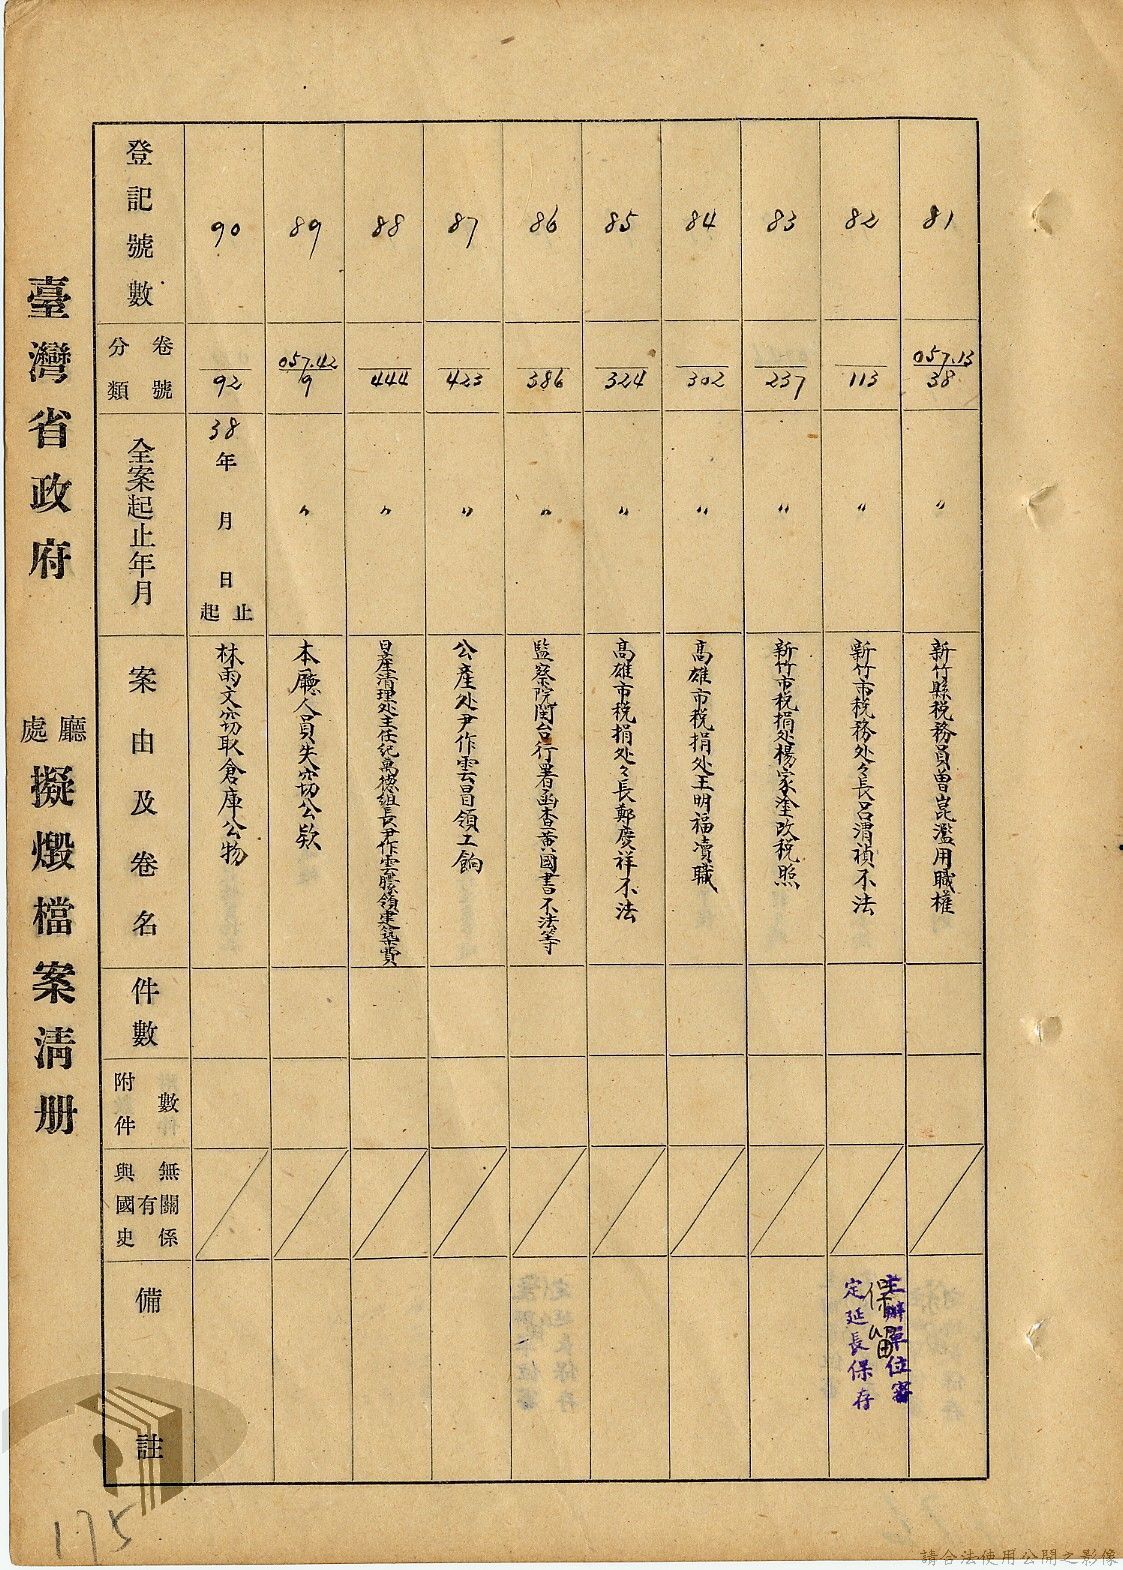 臺灣省政府 廳處 擬燬檔案清册
登記號數
分類 卷號
全案起止年月
案由及卷名
件數
附件 件數
與國史 有無關係
備註
81
057.13
38
〃
新竹縣税務員曾崑濫用職權
82
113
〃
新竹市税務处々長呂渭禎不法
主辦單位審
定延長保存
保留
83
237
〃
新竹市税捐处楊家塗改税照
84
302
〃
高雄市税捐处王明福瀆職
85
324
〃
高雄市税捐处々長鄭慶祥不法
86
386
〃
監察院閩台行署函查黄國書不法等
87
423
〃
公產处尹作雲冒領工餉
88
444
〃
日產清理处主任紀萬德組長尹作雲朦領建築費
89
057.42
9
〃
本廳人員失窃公欵
90
92
38年 月 日 起止
林雨文窃取倉庫公物
175
請合法使用公開之影像